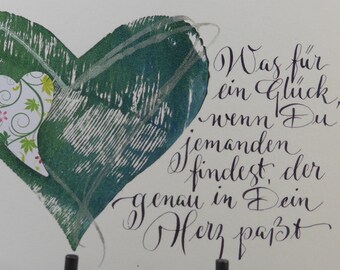 Was für
ein Glück,
wenn Du
jemanden
findest, der
genau in Dein
Herz paßt